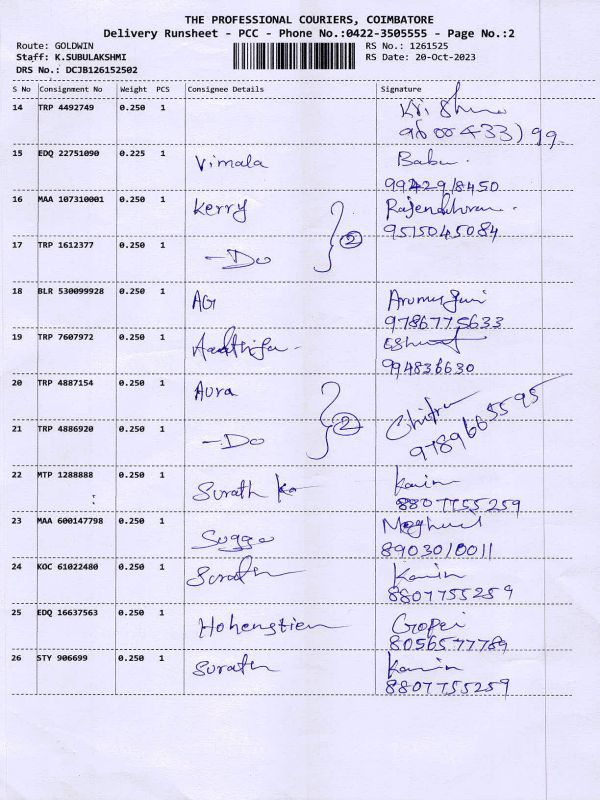 THE PROFESSIONAL COURIERS, COIMBATORE
Delivery Runsheet - PCC - Phone No.:0422-3505555 - Page No.:2
Route: GOLDWIN RS No.: 1261525
Staff: K.SUBULAKSHMI RS Date: 20-Oct-2023
DRS No.: DCJB126152502
S No Consignment No Weight PCS Consignee Details Signature
14 TRP 4492749 0.250 1
15 EDQ 22751090 0.225 1 Vimala Babu
9942918450
16 MAA 107310001 0.250 1 Kerry Rajendhiran
9515045084
17 TRP 1612377 0.250 1 - Do 2
18 BLR 530099928 0.250 1 AG
9786775633
19 TRP 7607972 0.250 1
994836630
20 TRP 4887154 0.250 1 Aura Chitra
21 TRP 4886920 0.250 1 - Do 2 9789665595
22 MTP 1288888 0.250 1 Surath
8807755259
23 MAA 600147798 0.250 1
8903010011
24 KOC 61022480 0.250 1 Surath
8807755259
25 EDQ 16637563 0.250 1 Hohenstien Gopi
8056577789
26 STY 906699 0.250 1 Surath
8807755259